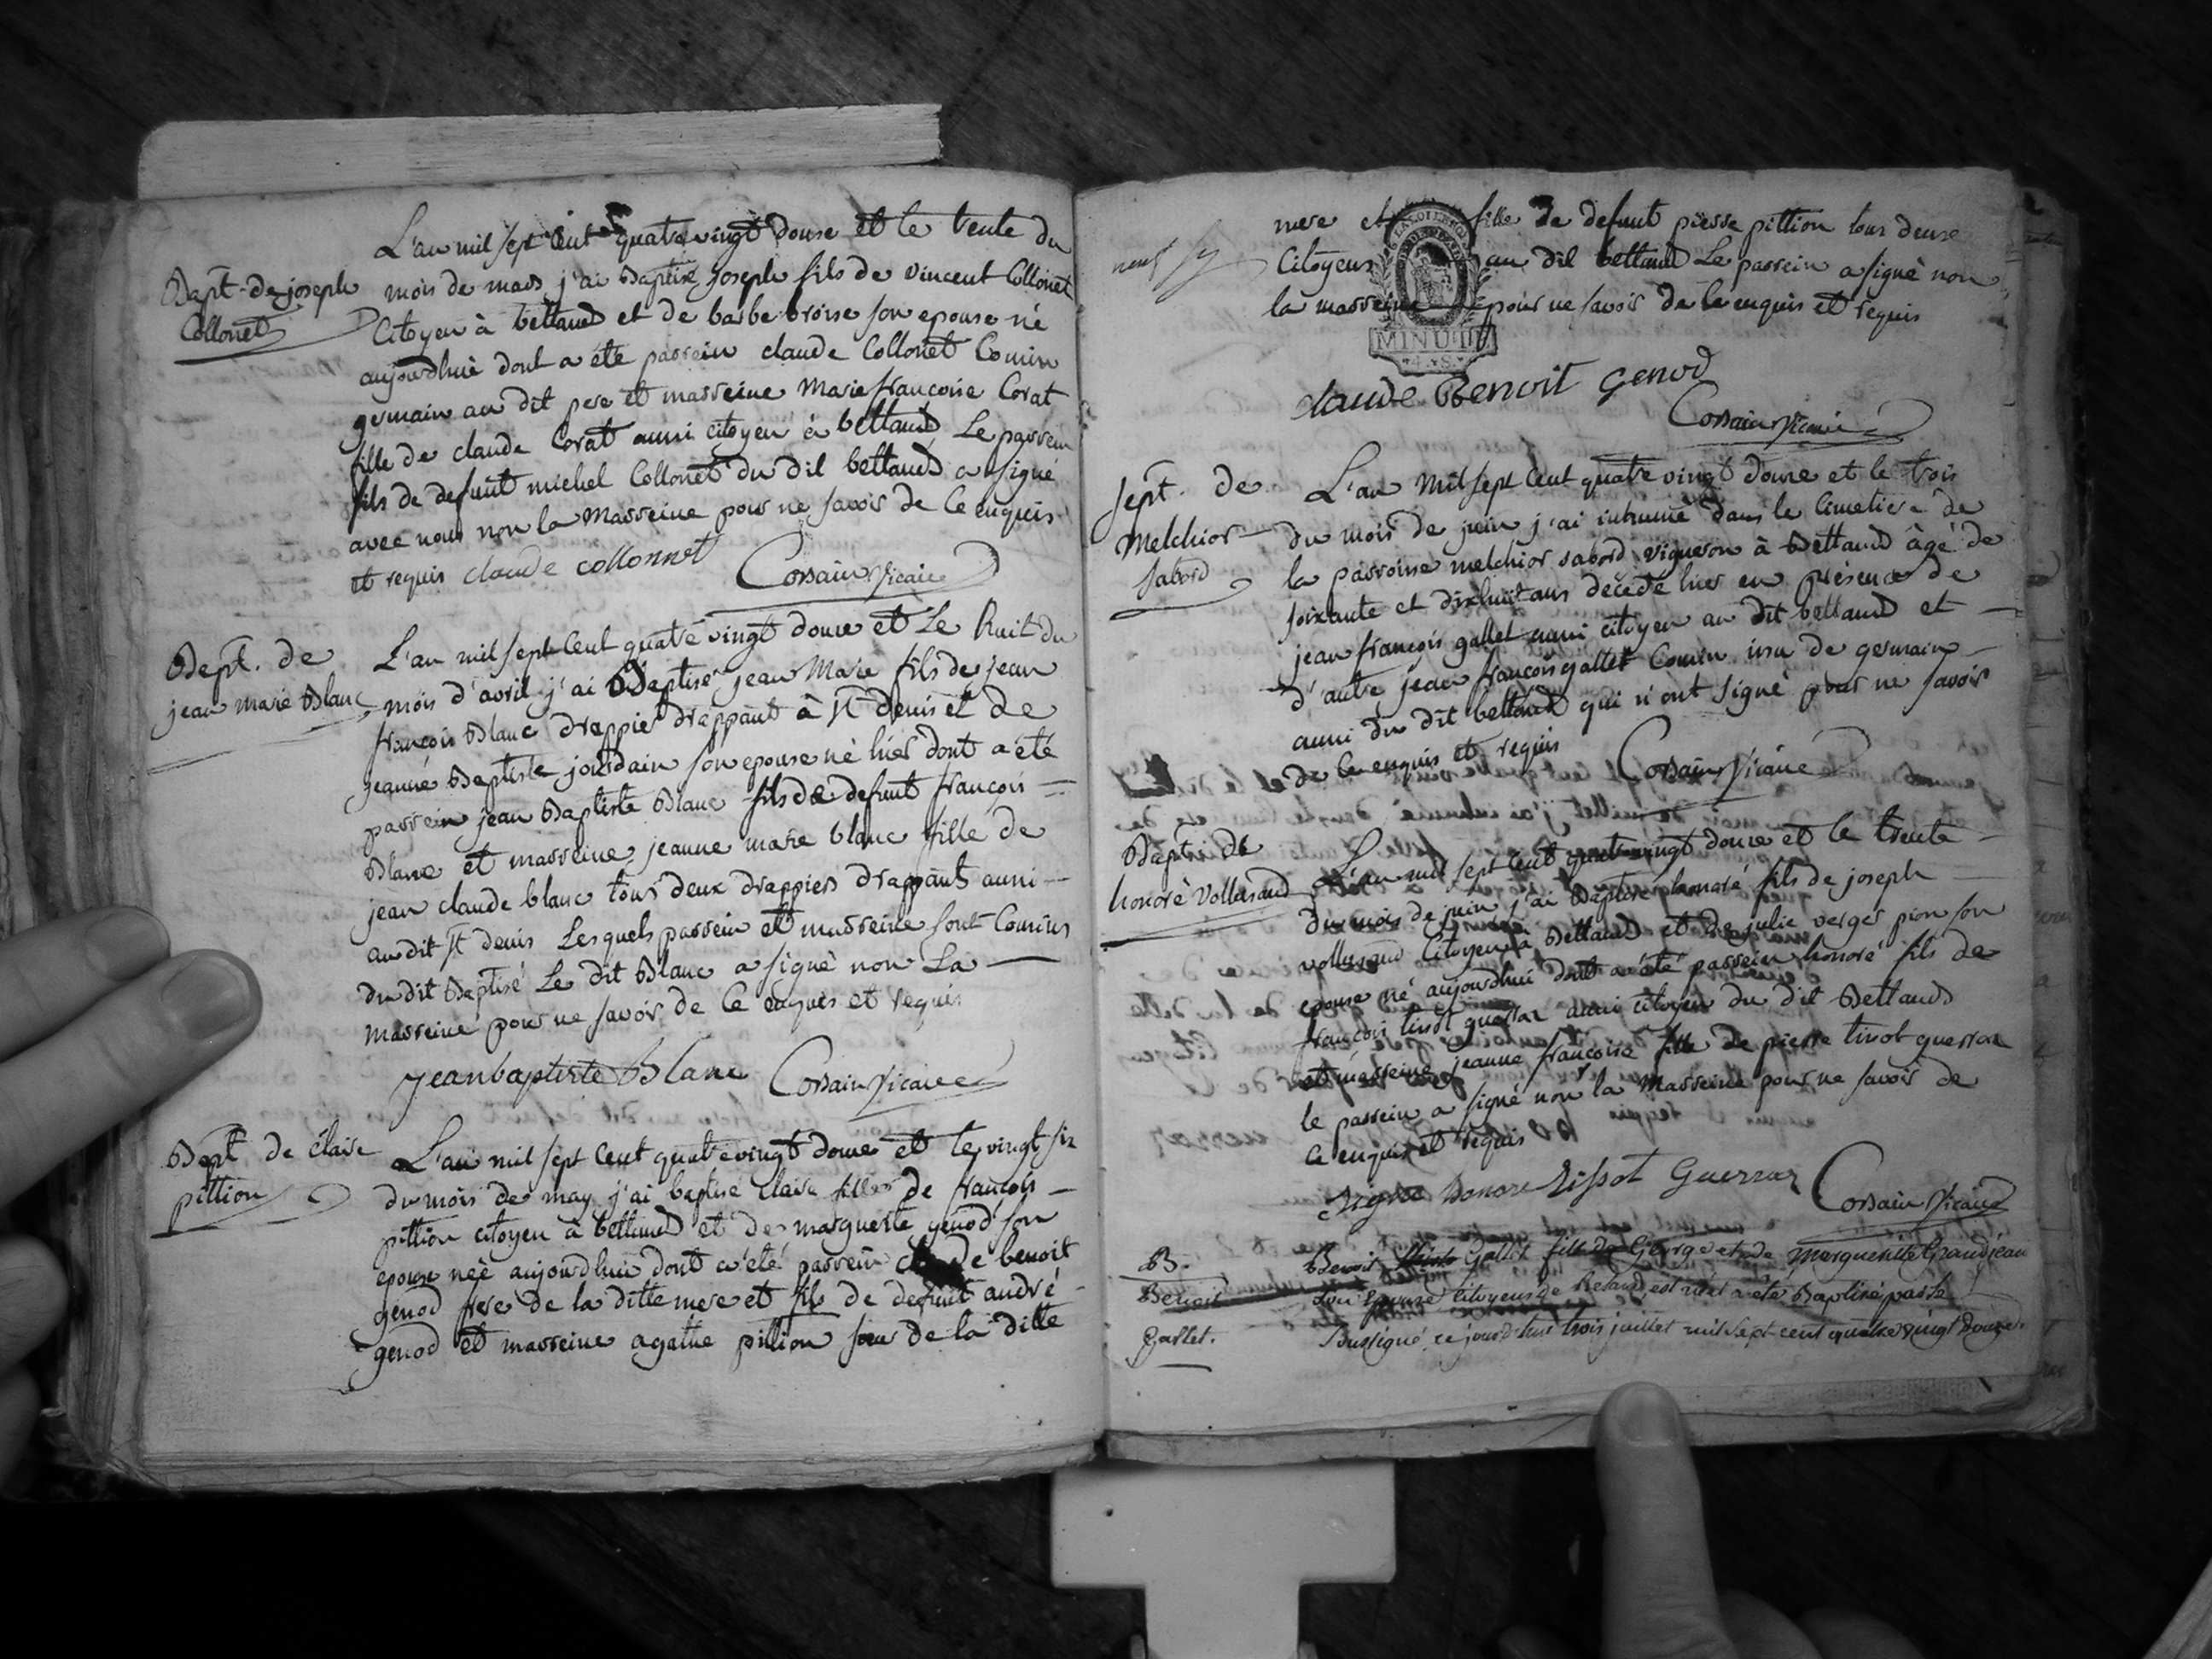 Bapt. de joseph
Collonet
L'an mil sept Cent quatre vingt douse et le trente du
mois de mars j'ai Baptisé joseph fils de vincent Collonet
Citoyen à bettaud et de barbe broise son epouse né
aujourdhui dont a été parrein claude Collonet Cousin
germain au dit pere et marreine Marie francoise Corat
fille de claude Corat aussi citoyen à bettaud Le parrein
fils de defunt michel Collonet du dit bettaud a signé
avec nous non la Marreine pour ne savoir de Ce enquis
et requis claude collonnet Corsain vicaire
Bapt. de
jean marie Blanc
L'an mil sept Cent quatre vingt douse et Le huit du
mois d'avril j'ai Baptisé jean Marie fils de jean
françois Blanc drappier drappant à st denis et de
jeanne Baptiste jourdain son epouse né hier dont a été
parrein jean Baptiste Blanc fils de defunt françois
Blanc et marreine jeanne marie blanc fille de
jean claude blanc tous deux drappiers drappants aussi
au dit st denis Lesquels parrein et marreine sont Cousins
du dit Baptisé Le dit Blanc a signé non La
marreine pour ne savoir de Ce enquis et requis
jeanbaptiste Blanc Corsain vicaire
Bapt. de claire
pittion
L'an mil sept Cent quatre vingt douse et le vingt six
du mois de may j'ai baptisé claire fille de françois
pittion citoyen à bettaud et de marguerite genod son
epouse née aujourdhui dont a été parrein claude benoit
genod frere de la ditte mere et fils de defunt andré
genod et marreine agathe pittion soeur de la ditte
mere et fille de defunt pierre pittion tous deux
Citoyens au dit bettaud Le parrein a signé non
la marreine pour ne savoir de Ce enquis et requis
MINUTE
4.S.
claude Benoit genod
Corsain vicaire
sept. de
Melchior
sabord
L'an Mil sept Cent quatre vingt douse et le trois
du mois de juin j'ai inhumé dans le Cimetiere de
la parroisse melchior sabord vigneron à Bettaud âgé de
soixante et dixhuit ans décédé hier en présence de
jean françois gallet aussi citoyen au dit bettaud et
d'autre jean françois gallet Cousin issu de germain
aussi du dit bettaud qui n'ont signé pour ne savoir
de Ce enquis et requis Corsain vicaire
Bapt. de
honoré Vollerand
L'an mil sept Cent quatre vingt douse et le trente
du mois de juin j'ai Baptisé honoré fils de joseph
vollerand Citoyen à Bettaud et de julie verger pion son
epouse né aujourdhui dont a été parrein honoré fils de
françois tissot guerraz aussi citoyen du dit Bettaud
et marreine jeanne françoise fille de pierre tissot guerraz
le parrein a signé non la Marreine pour ne savoir de
Ce enquis et requis
signé honore tissot Guerraz Corsain vicaire
B.
Benoit
Gallet.
Benoit Gallet fils de George et de Marguerite Grandjean
son Epouse citoyens de Betaud est né et a été Baptisé par le
Sussigné ce jourd'hui trois juillet mil sept cent quatre vingt douze.